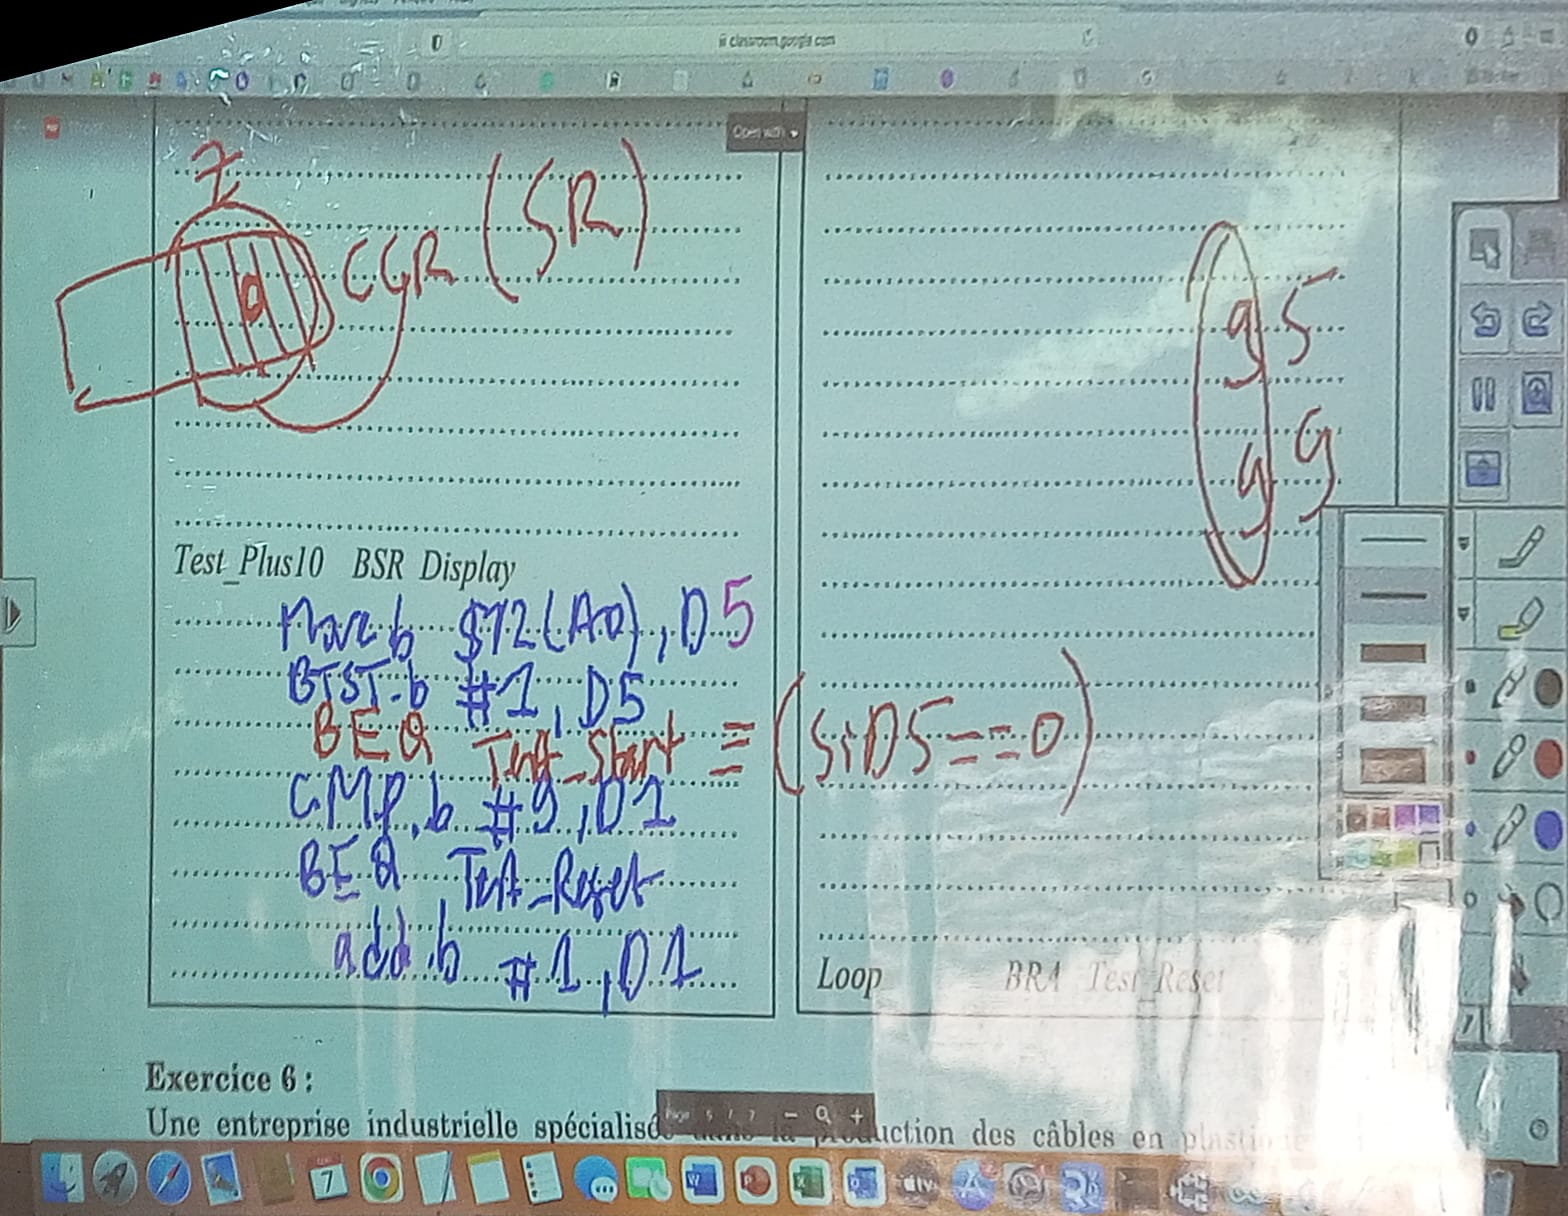 classroom.google.com
Open with
Z
CCR (SR)
0
9 5
9 9
Test_Plus10 BSR Display
Move.b $12(A0), D5
BTST.b #1, D5
BEQ Test_Start ≡ (si D5 == 0)
CMP.b #9, D1
BEQ Test_Reset
add.b #1, D1
Loop BRA Test_Reset
Exercice 6 :
Une entreprise industrielle spécialisée dans la production des câbles en plastique
Page 5 / 7
7